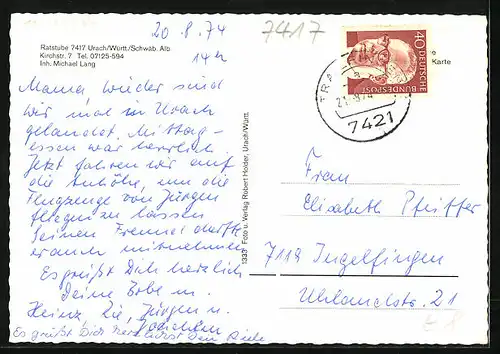 20.8.74
7417
14 er
Ratstube 7417 Urach/Württ/Schwäb. Alb
Kirchstr. 7 Tel. 07125-594
Inh. Michael Lang
Mama, wieder sind
wir mal in Urach
gelandet. Mittag-
essen war herrlich
Jetzt fahren wir auf
die Anhöhe, um die
Flugzeuge von Jürgen
fliegen zu lassen
Seinen Freund durft
er auch mitnehmen
Es grüßt Dich herzlich
Deine Erbe u.
Heinz, Jürgen u.
Joachim
Es grüßt Dich herzlichst Dein
1333 Foto u. Verlag Robert Holder, Urach/Württ.
40
DEUTSCHE
BUNDESPOST
7421
e
Karte
Frau
Elisabeth Pfeiffer
7118 Ingelfingen
Uhlandstr. 21